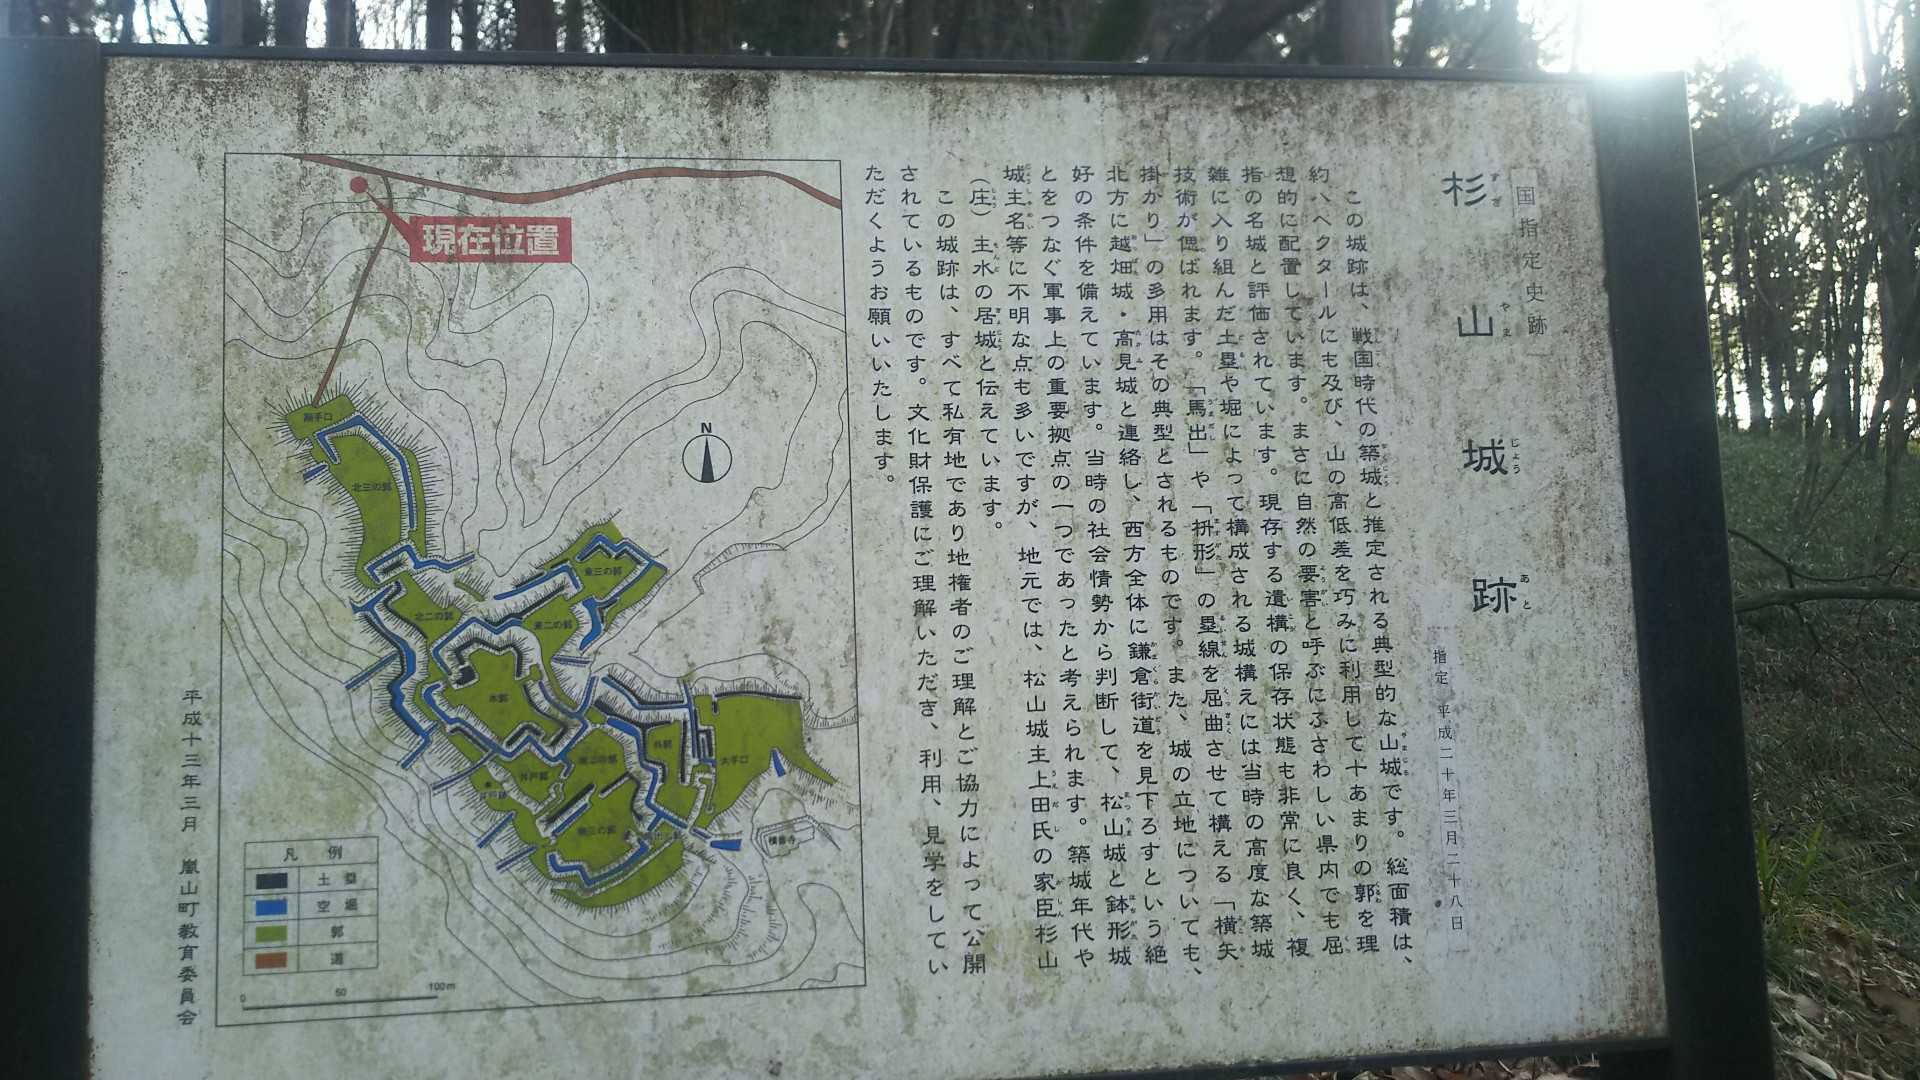 国指定史跡
杉山城跡
すぎ やま じょう あと
指定 平成二十年三月二十八日
この城跡は、戦国時代の築城と推定される典型的な山城です。総面積は、
約八ヘクタールにも及び、山の高低差を巧みに利用して十あまりの郭を理
想的に配置しています。まさに自然の要害と呼ぶにふさわしい県内でも屈
指の名城と評価されています。現存する遺構の保存状態も非常に良く、複
雑に入り組んだ土塁や堀によって構成される城構えには当時の高度な築城
技術が偲ばれます。「馬出」や「枡形」の塁線を屈曲させて構える「横矢
掛かり」の多用はその典型とされるものです。また、城の立地についても、
北方に越畑城・高見城と連絡し、西方全体に鎌倉街道を見下ろすという絶
好の条件を備えています。当時の社会情勢から判断して、松山城と鉢形城
とをつなぐ軍事上の重要拠点の一つであったと考えられます。築城年代や
城主名等に不明な点も多いですが、地元では、松山城主上田氏の家臣杉山
(庄)主水の居城と伝えています。
この城跡は、すべて私有地であり地権者のご理解とご協力によって公開
されているものです。文化財保護にご理解いただき、利用、見学をしてい
ただくようお願いいたします。
現在位置
N
搦手口
北三の郭
北二の郭
東三の郭
東二の郭
本郭
外郭
大手口
南二の郭
井戸郭
井戸跡
南三の郭
積善寺
凡例
土塁
空堀
郭
道
0 50 100m
平成十三年三月 嵐山町教育委員会